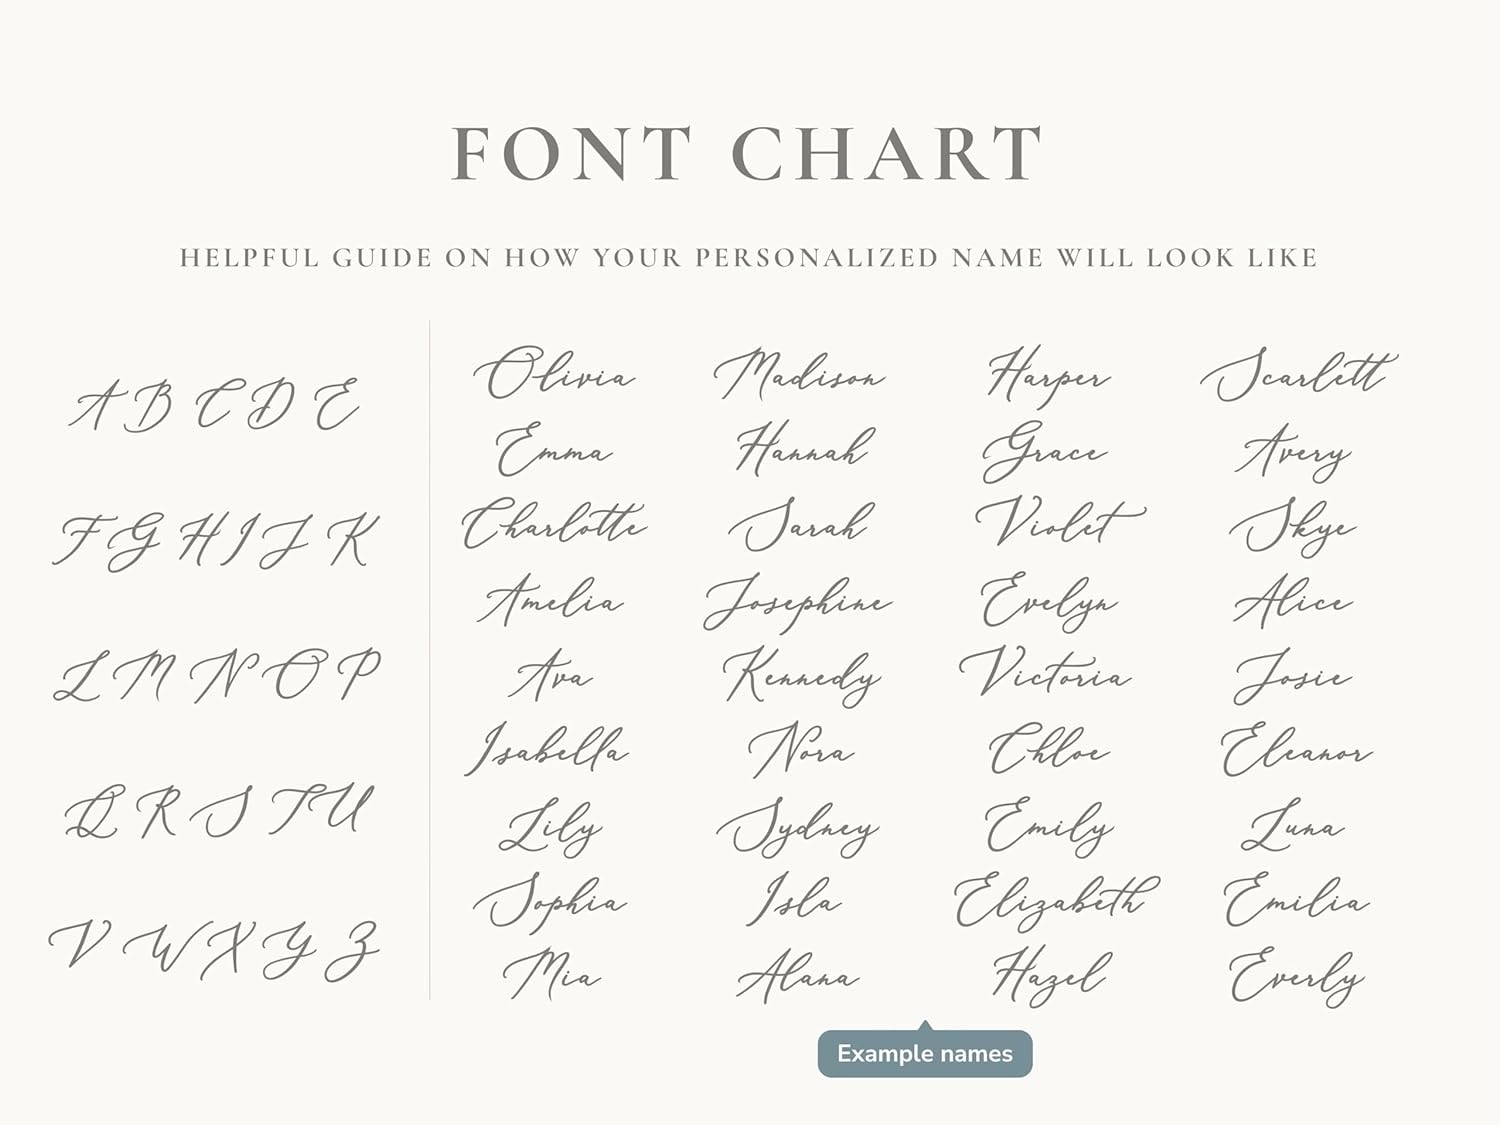 FONT CHART
HELPFUL GUIDE ON HOW YOUR PERSONALIZED NAME WILL LOOK LIKE
A B C D E
F G H I J K
L M N O P
Q R S T U
V W X Y Z
Olivia Madison Harper Scarlett
Emma Hannah Grace Avery
Charlotte Sarah Violet Skye
Amelia Josephine Evelyn Alice
Ava Kennedy Victoria Josie
Isabella Nora Chloe Eleanor
Lily Sydney Emily Luna
Sophia Isla Elizabeth Emilia
Mia Alana Hazel Everly
Example names